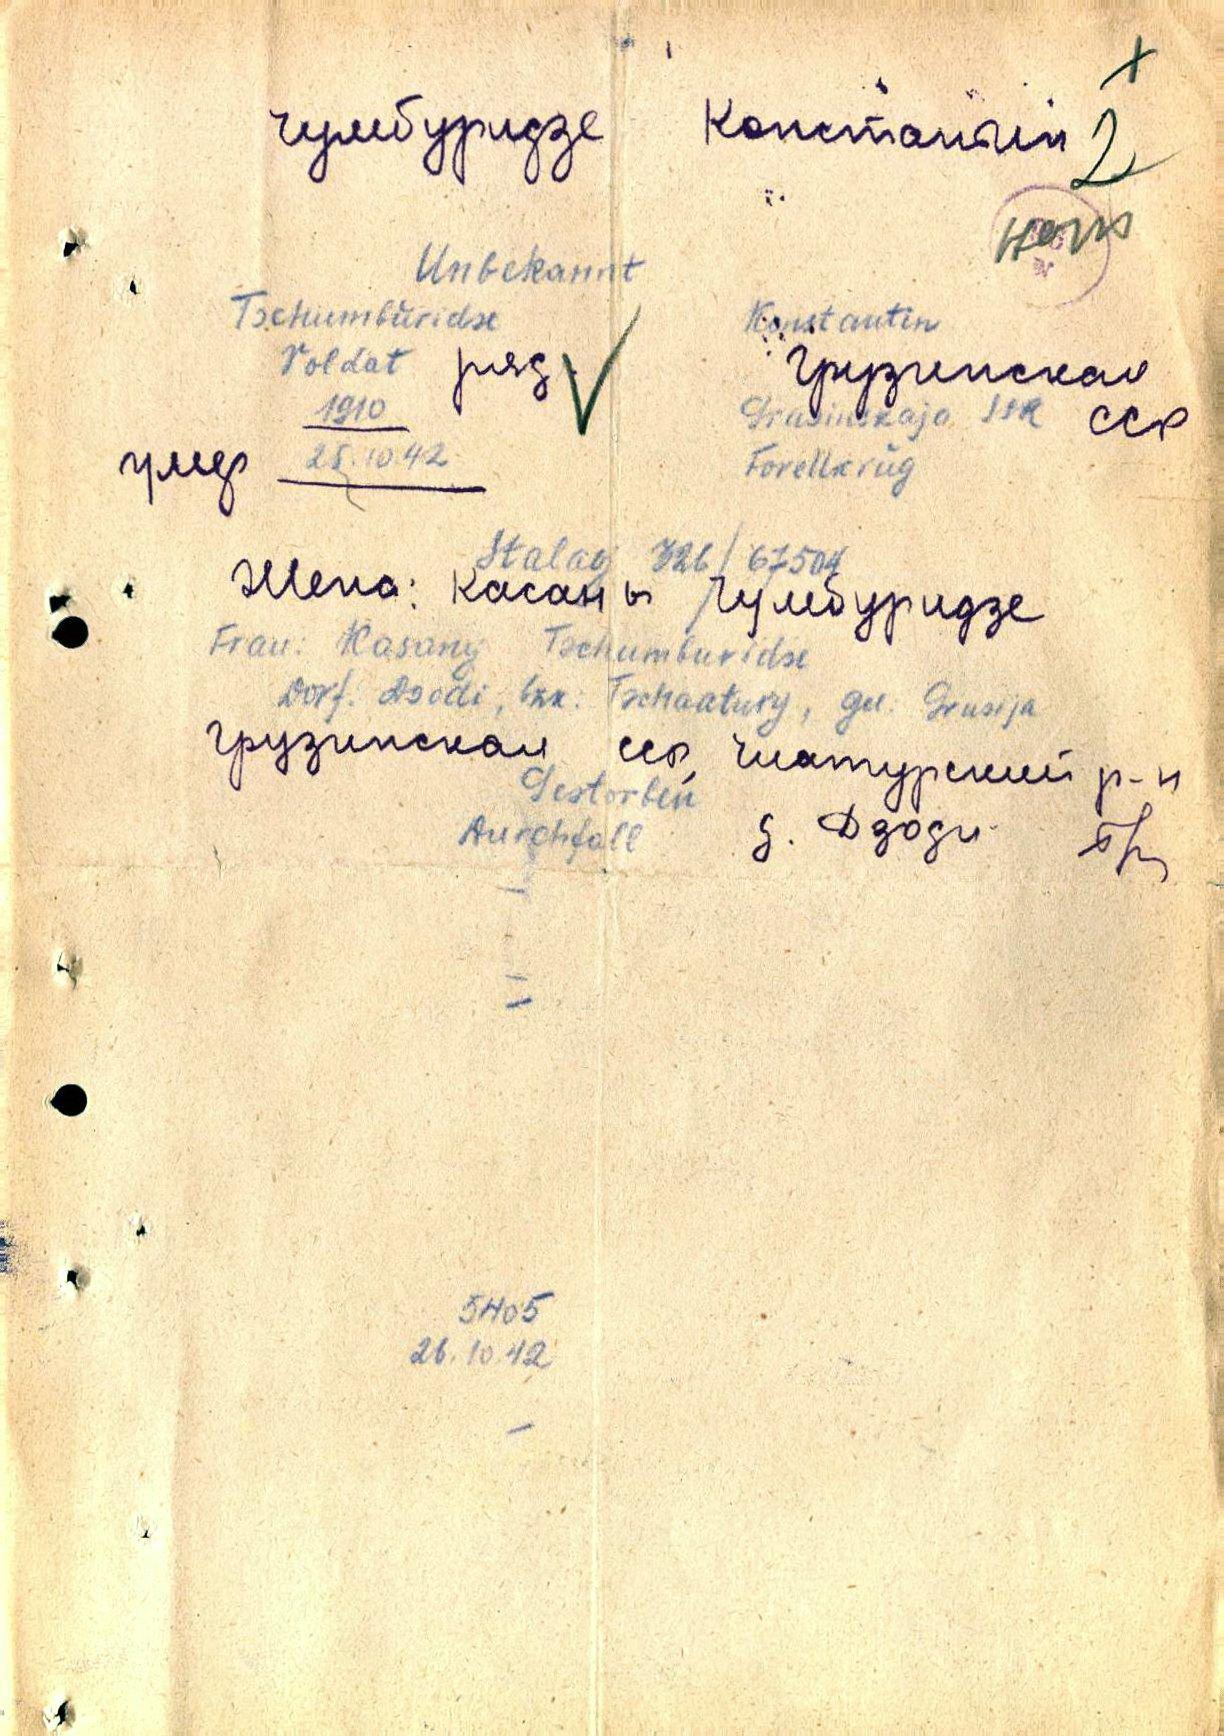 Чумбуридзе Константин 2
Unbekannt
Tschumburidse Konstantin
Soldat ряд. Грузинская
1910 Grusinskaja SSR ССР
умер 25.10.42 Forellkrug
Stalag 326/67504
Жена: Касаны Чумбуридзе
Frau: Kasany Tschumburidse
Dorf: Dsodi, bzk: Tschaatury, gel: Grusija
Грузинская ССР, Чиатурский р-н
Gestorben
Durchfall д. Дзоди
5405
26.10.42